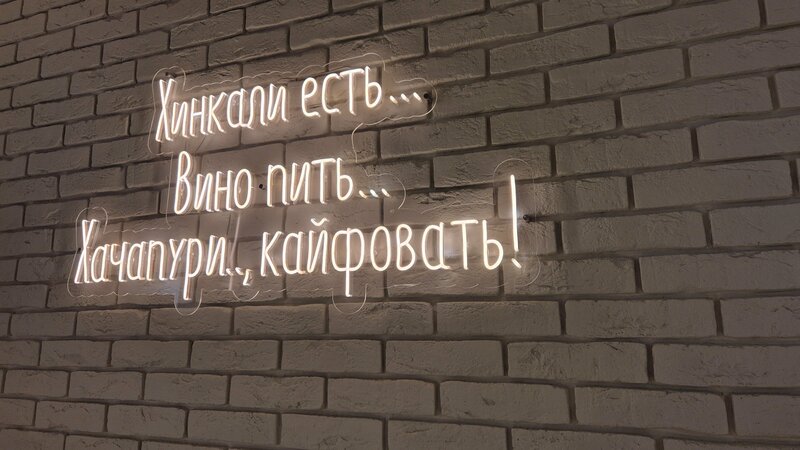 Хинкали есть...
Вино пить...
Хачапури.., кайфовать!